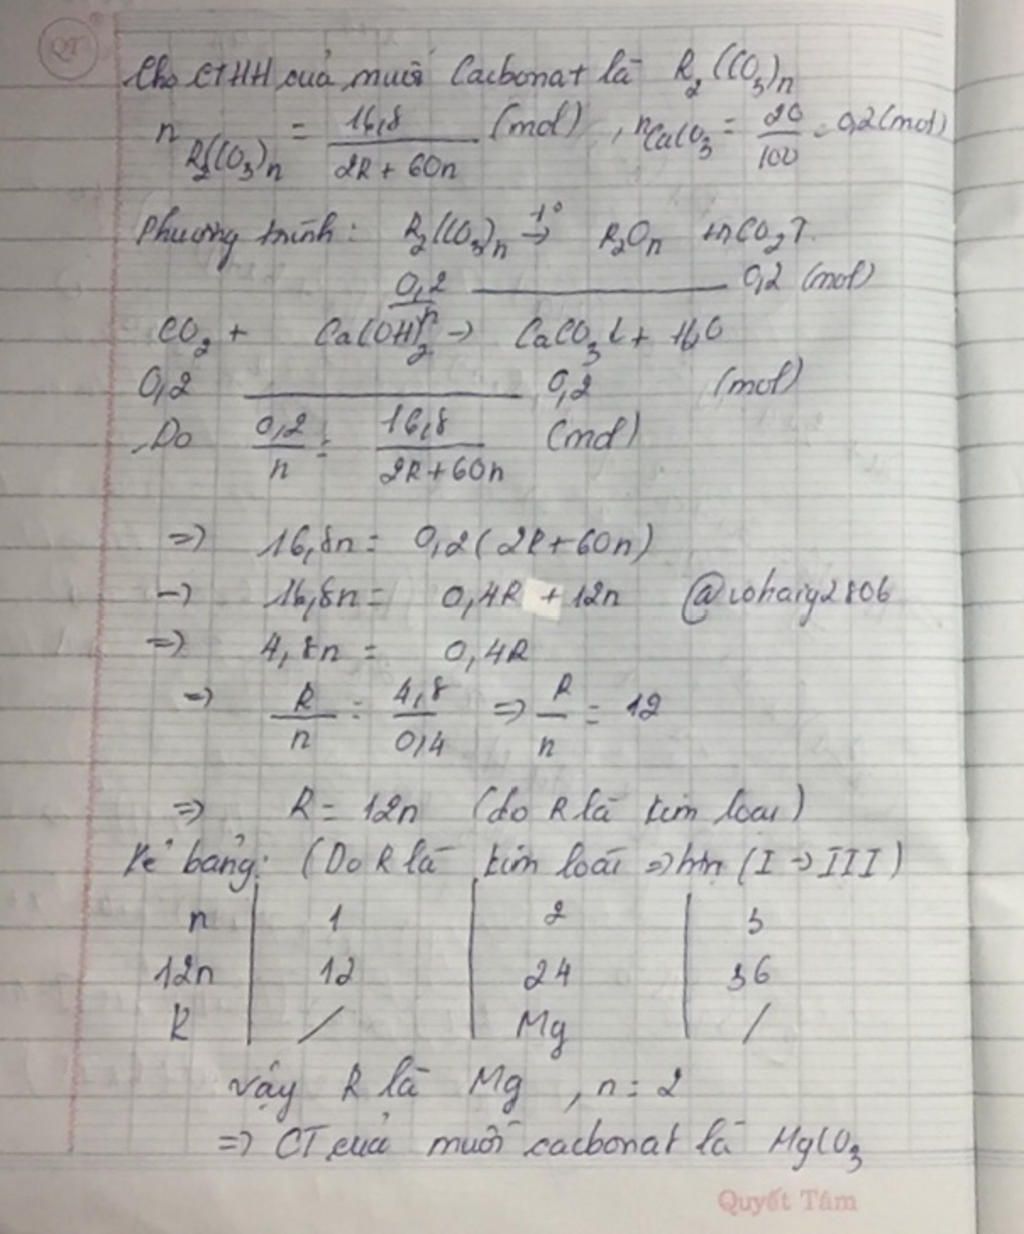 QT
Cho CTHH của muối Cacbonat là R₂(CO₃)n
n R₂(CO₃)n = 16,8 / 2R + 60n (mol) , nCaCO₃ = 20 / 100 = 0,2 (mol)
Phương trình: R₂(CO₃)n t°→ R₂On + nCO₂↑.
0,2 / n ——— 0,2 (mol)
CO₂ + Ca(OH)₂ → CaCO₃↓ + H₂O
0,2 ——— 0,2 (mol)
Do 0,2 / n = 16,8 / 2R + 60n (mol)
=> 16,8n = 0,2(2R + 60n)
-> 16,8n = 0,4R + 12n @vohaiy2806
=> 4,8n = 0,4R
=> R / n = 4,8 / 0,4 => R / n = 12
=> R = 12n (do R là kim loại)
Kẻ bảng: (Do R là kim loại => (I → III)
n | 1 | 2 | 3
12n | 12 | 24 | 36
R | / | Mg | /
Vậy R là Mg , n = 2
=> CT của muối cacbonat là MgCO₃
Quyết Tâm